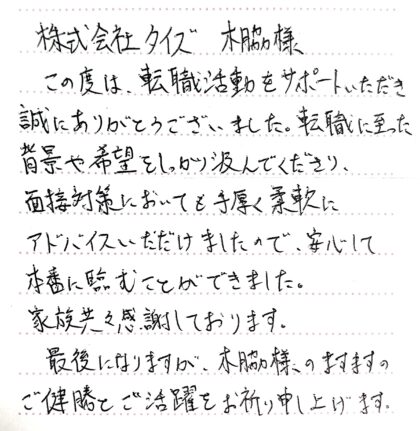 株式会社タイズ 木脇様、
この度は、転職活動をサポートいただき
誠にありがとうございました。転職に至った
背景や希望をしっかり汲んでくださり、
面接対策においても手厚く柔軟に
アドバイスいただけましたので、安心して
本番に臨むことができました。
家族共々感謝しております。
最後になりますが、木脇様のますますの
ご健勝とご活躍をお祈り申し上げます。